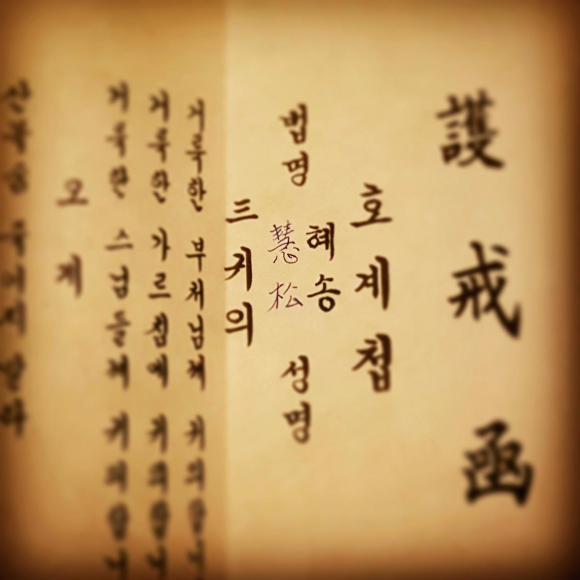 護戒函
호계첩
법명 慧松 혜송 성명
三귀의
거룩한 부처님께 귀의합니
거룩한 가르침에 귀의합니
거룩한 스님들께 귀의합니
오계
산목숨 죽이지 말라